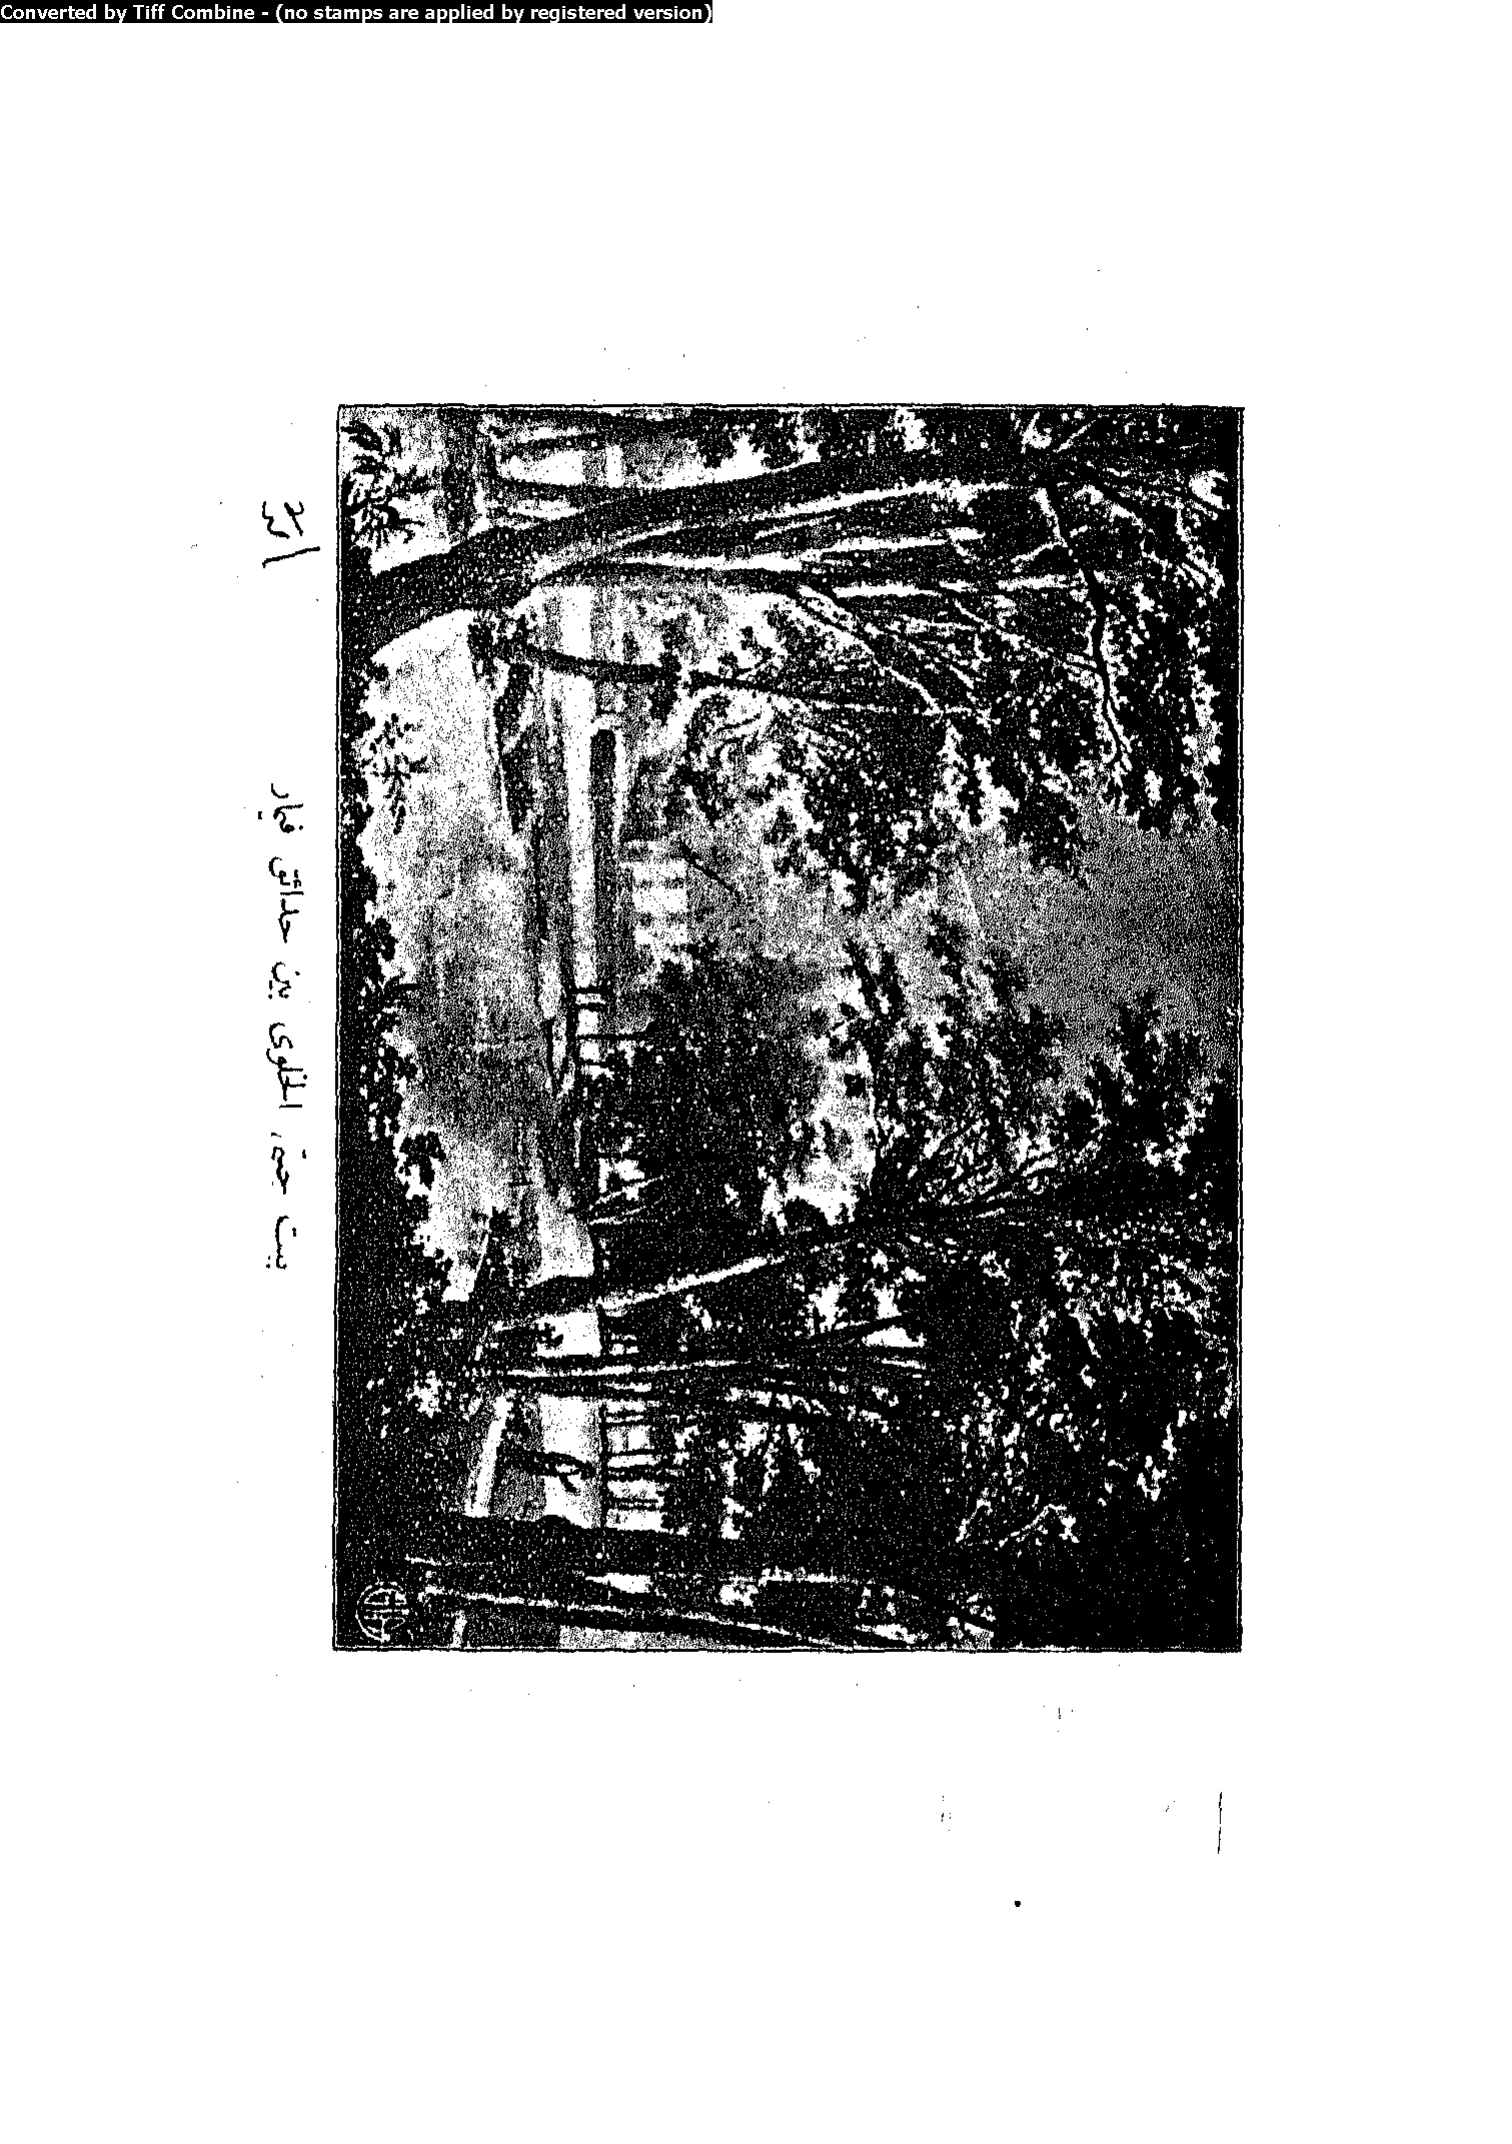 Converted by Tiff Combine - (no stamps are applied by registered version)
بيت جيته الخلوى بين حدائق فيمار